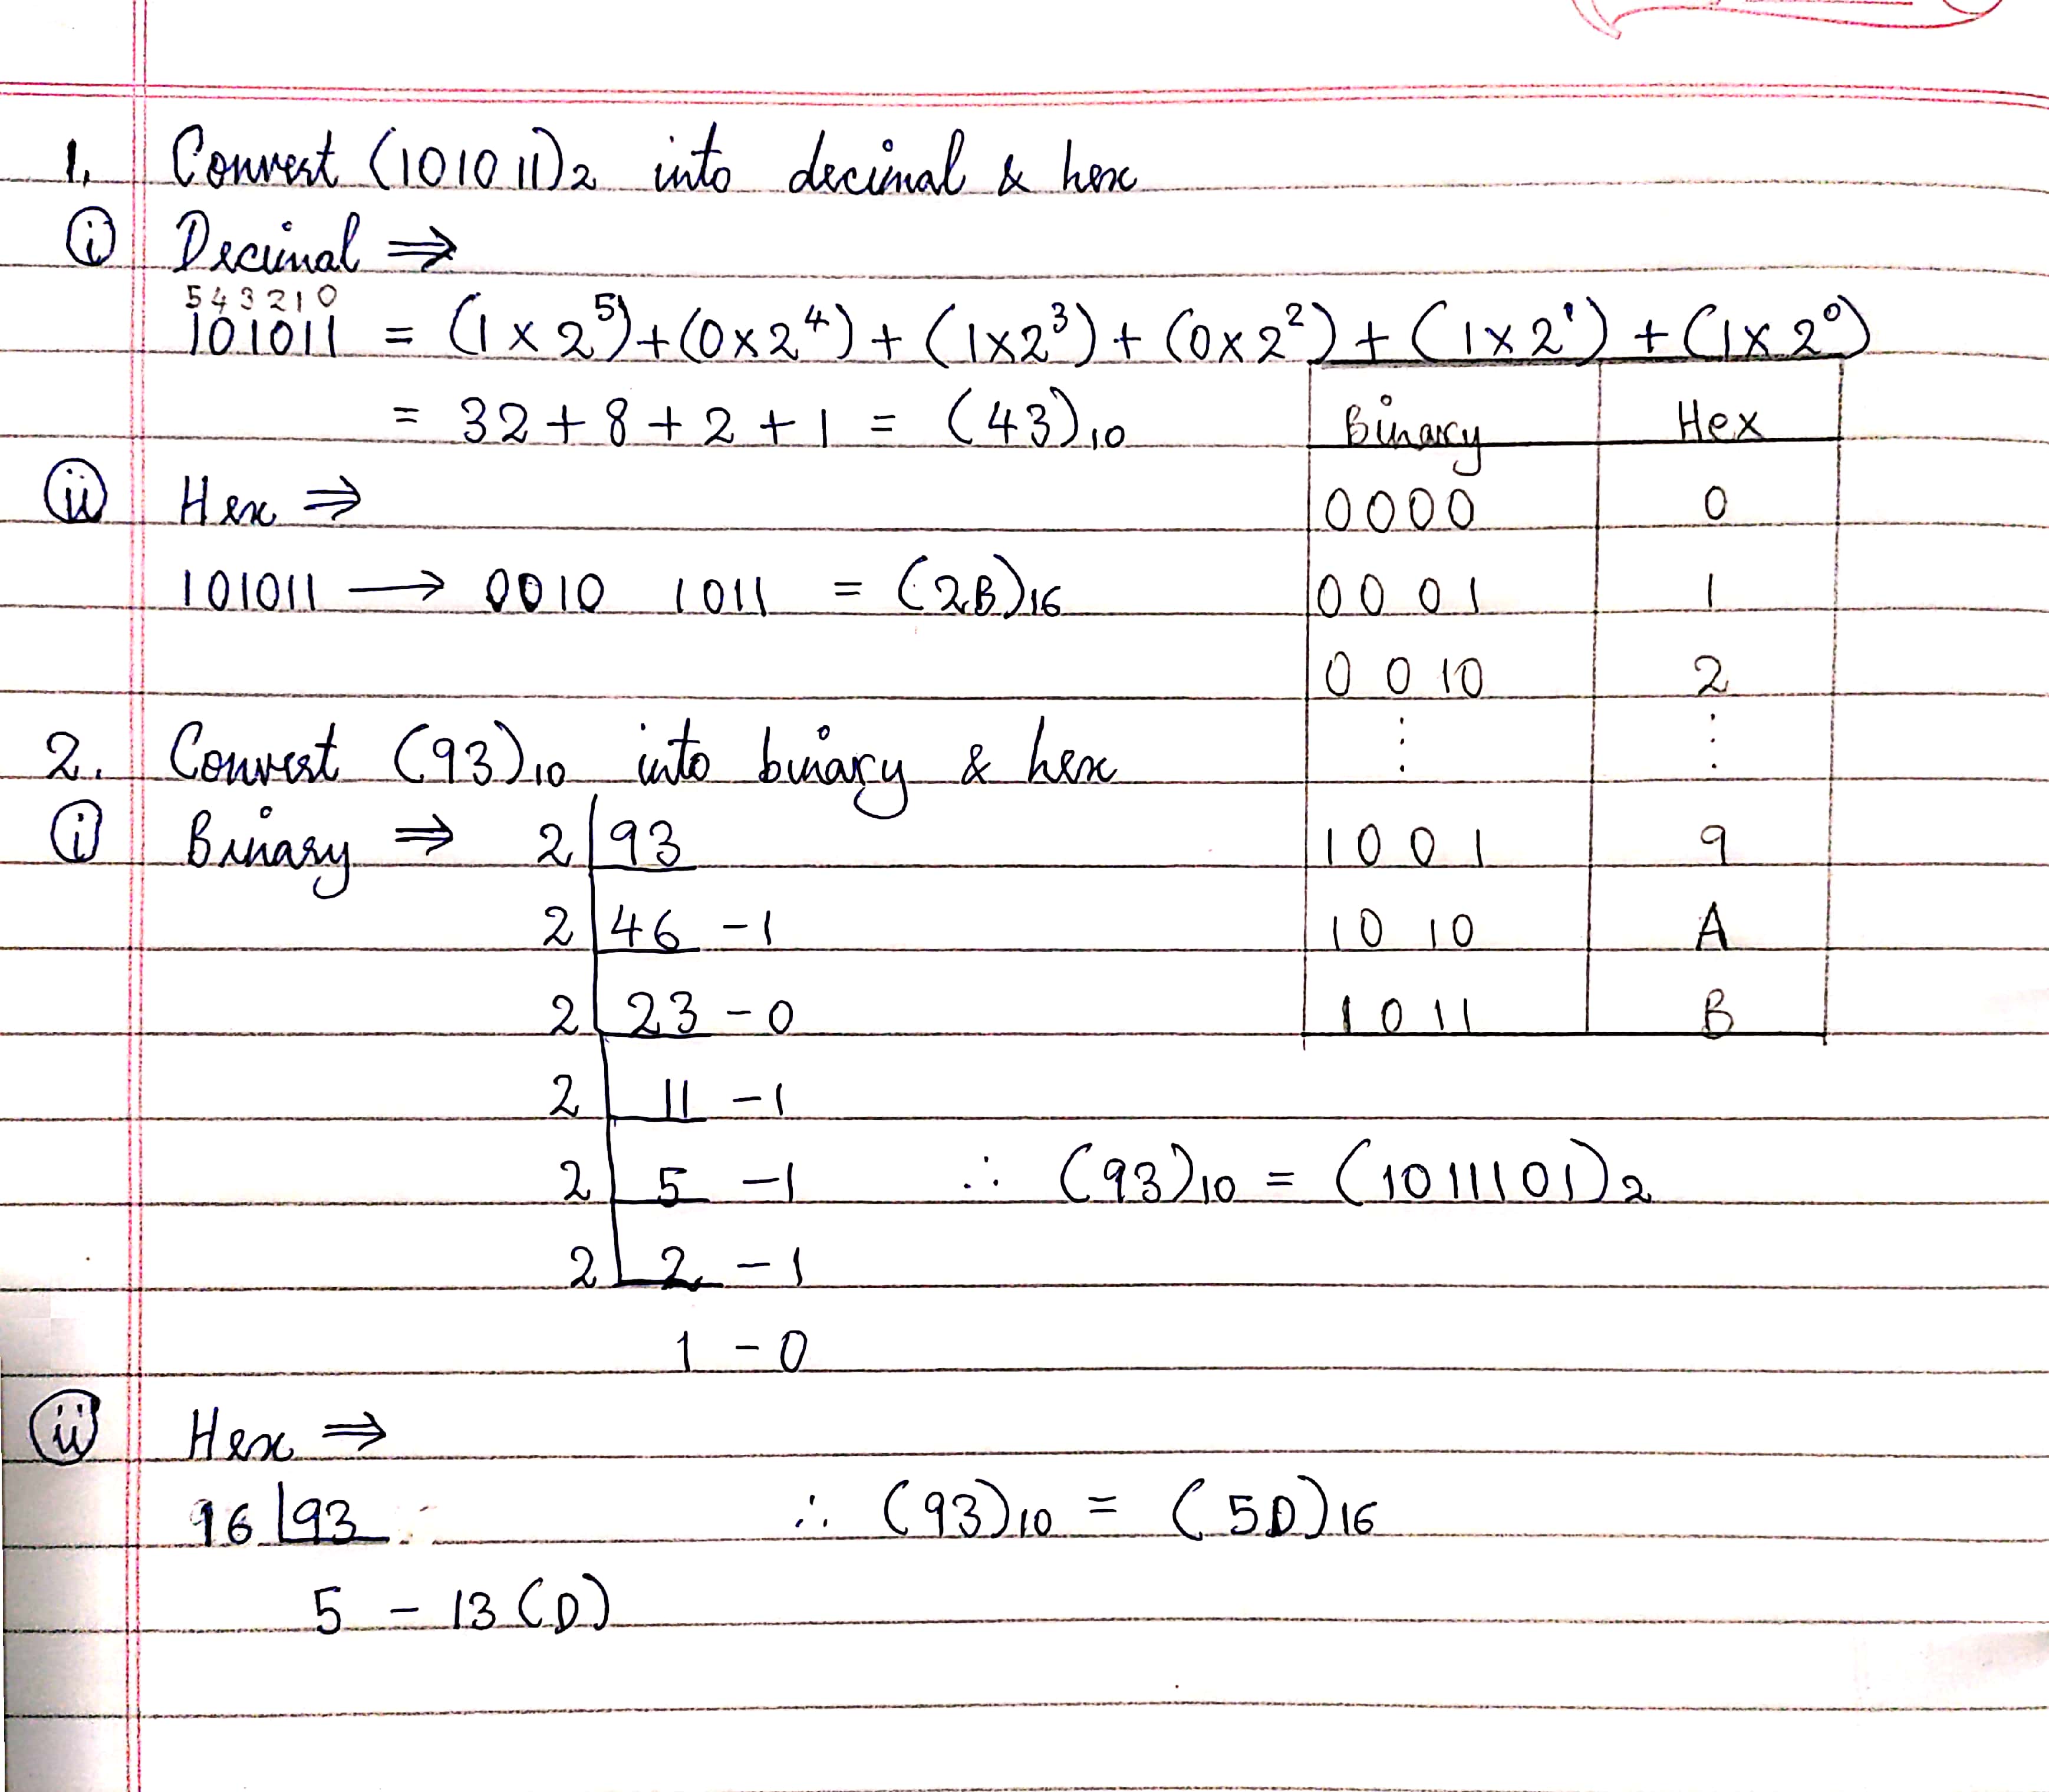 1. Convert (101011)₂ into decimal & hex
(i) Decimal ⇒
5 4 3 2 1 0
101011 = (1 x 2⁵) + (0 x 2⁴) + (1 x 2³) + (0 x 2²) + (1 x 2¹) + (1 x 2⁰)
= 32 + 8 + 2 + 1 = (43)₁₀
(ii) Hex ⇒
101011 → 0010 1011 = (2B)₁₆
Binary Hex
0000 0
0001 1
0010 2
⋮ ⋮
1001 9
1010 A
1011 B
2. Convert (93)₁₀ into binary & hex
(i) Binary ⇒ 2 | 93
2 | 46 - 1
2 | 23 - 0
2 | 11 - 1
2 | 5 - 1
2 | 2 - 1
1 - 0
∴ (93)₁₀ = (1011101)₂
(ii) Hex ⇒
16 | 93
5 - 13 (D)
∴ (93)₁₀ = (5D)₁₆